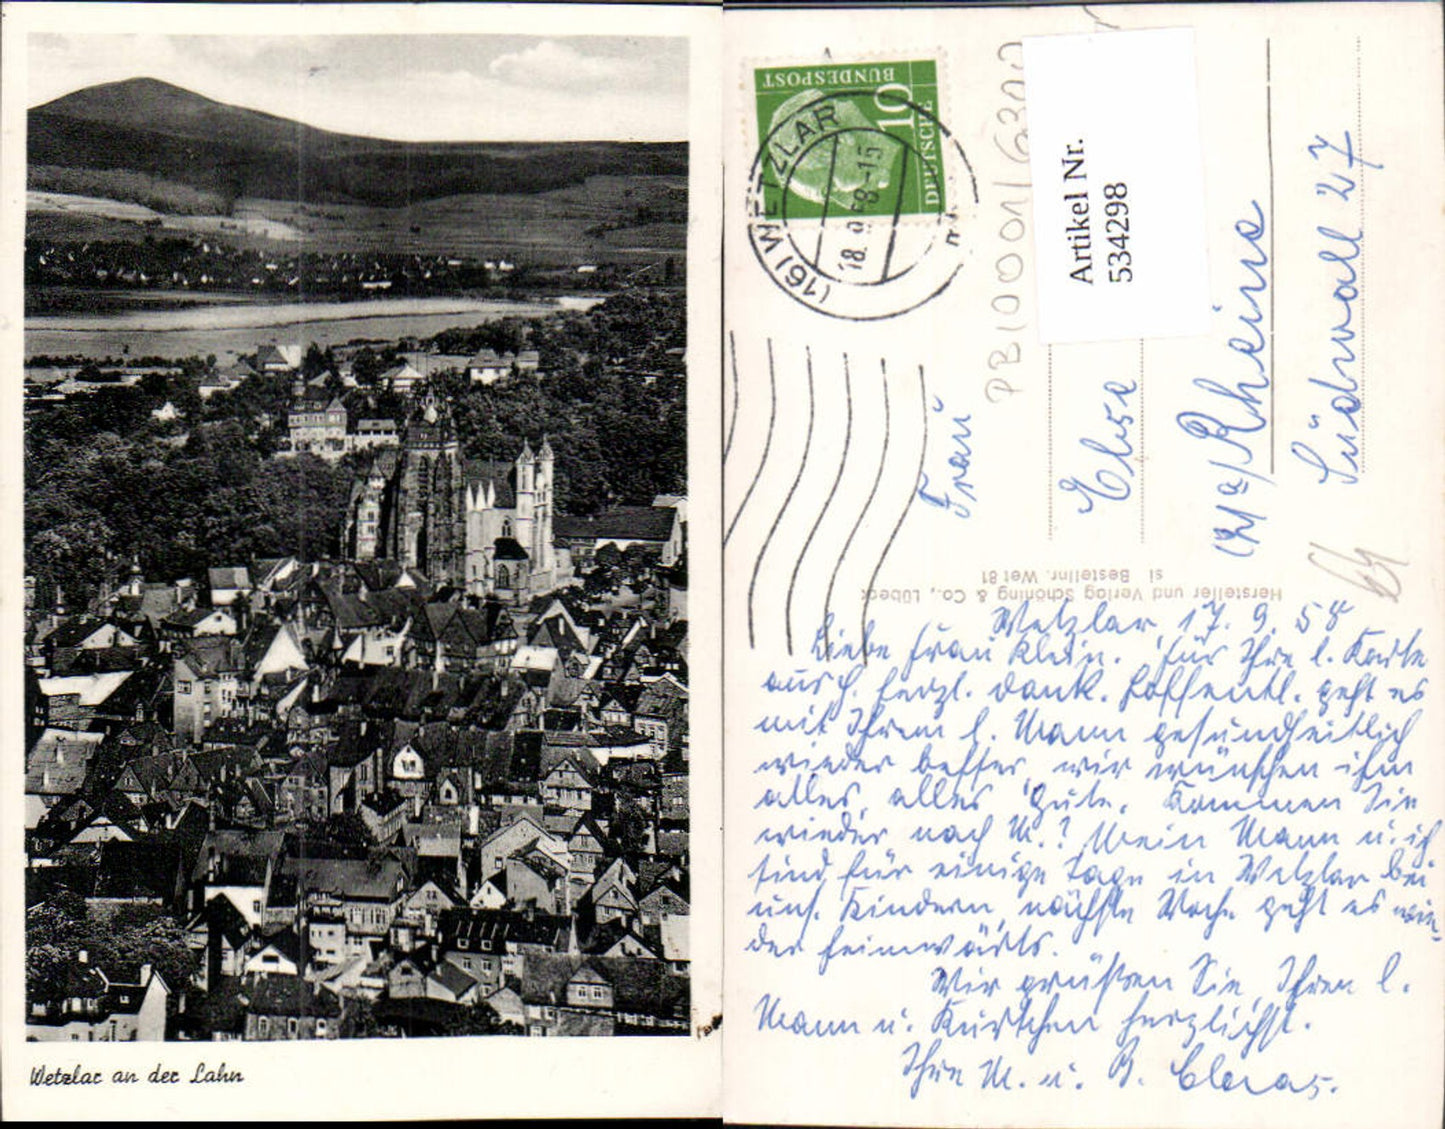 Wetzlar an der Lahn
DEUTSCHE
BUNDESPOST
10
(16) WETZLAR
18.9.58-15
PB10001/6300
Artikel Nr.
534298
Frau
Elsa
(21a) Rheine
Südwall 27
Hersteller und Verlag Schöning & Co., Lübeck
si Bestellnr. Wet 81
Wetzlar, 17. 9. 58
Liebe Frau Klein. Für Ihre l. Karte
auch herzl. Dank. Hoffentl. geht es
mit Ihrem l. Mann gesundheitlich
wieder besser, wir wünschen ihm
alles, alles Gute. Kommen Sie
wieder nach M.? Mein Mann u. ich
sind für einige Tage in Wetzlar bei
uns. Kindern, nächste Woche geht es wie-
der heimwärts.
Wir grüßen Sie, Ihren l.
Mann u. Kurtchen herzlichst.
Ihre M. u. G.